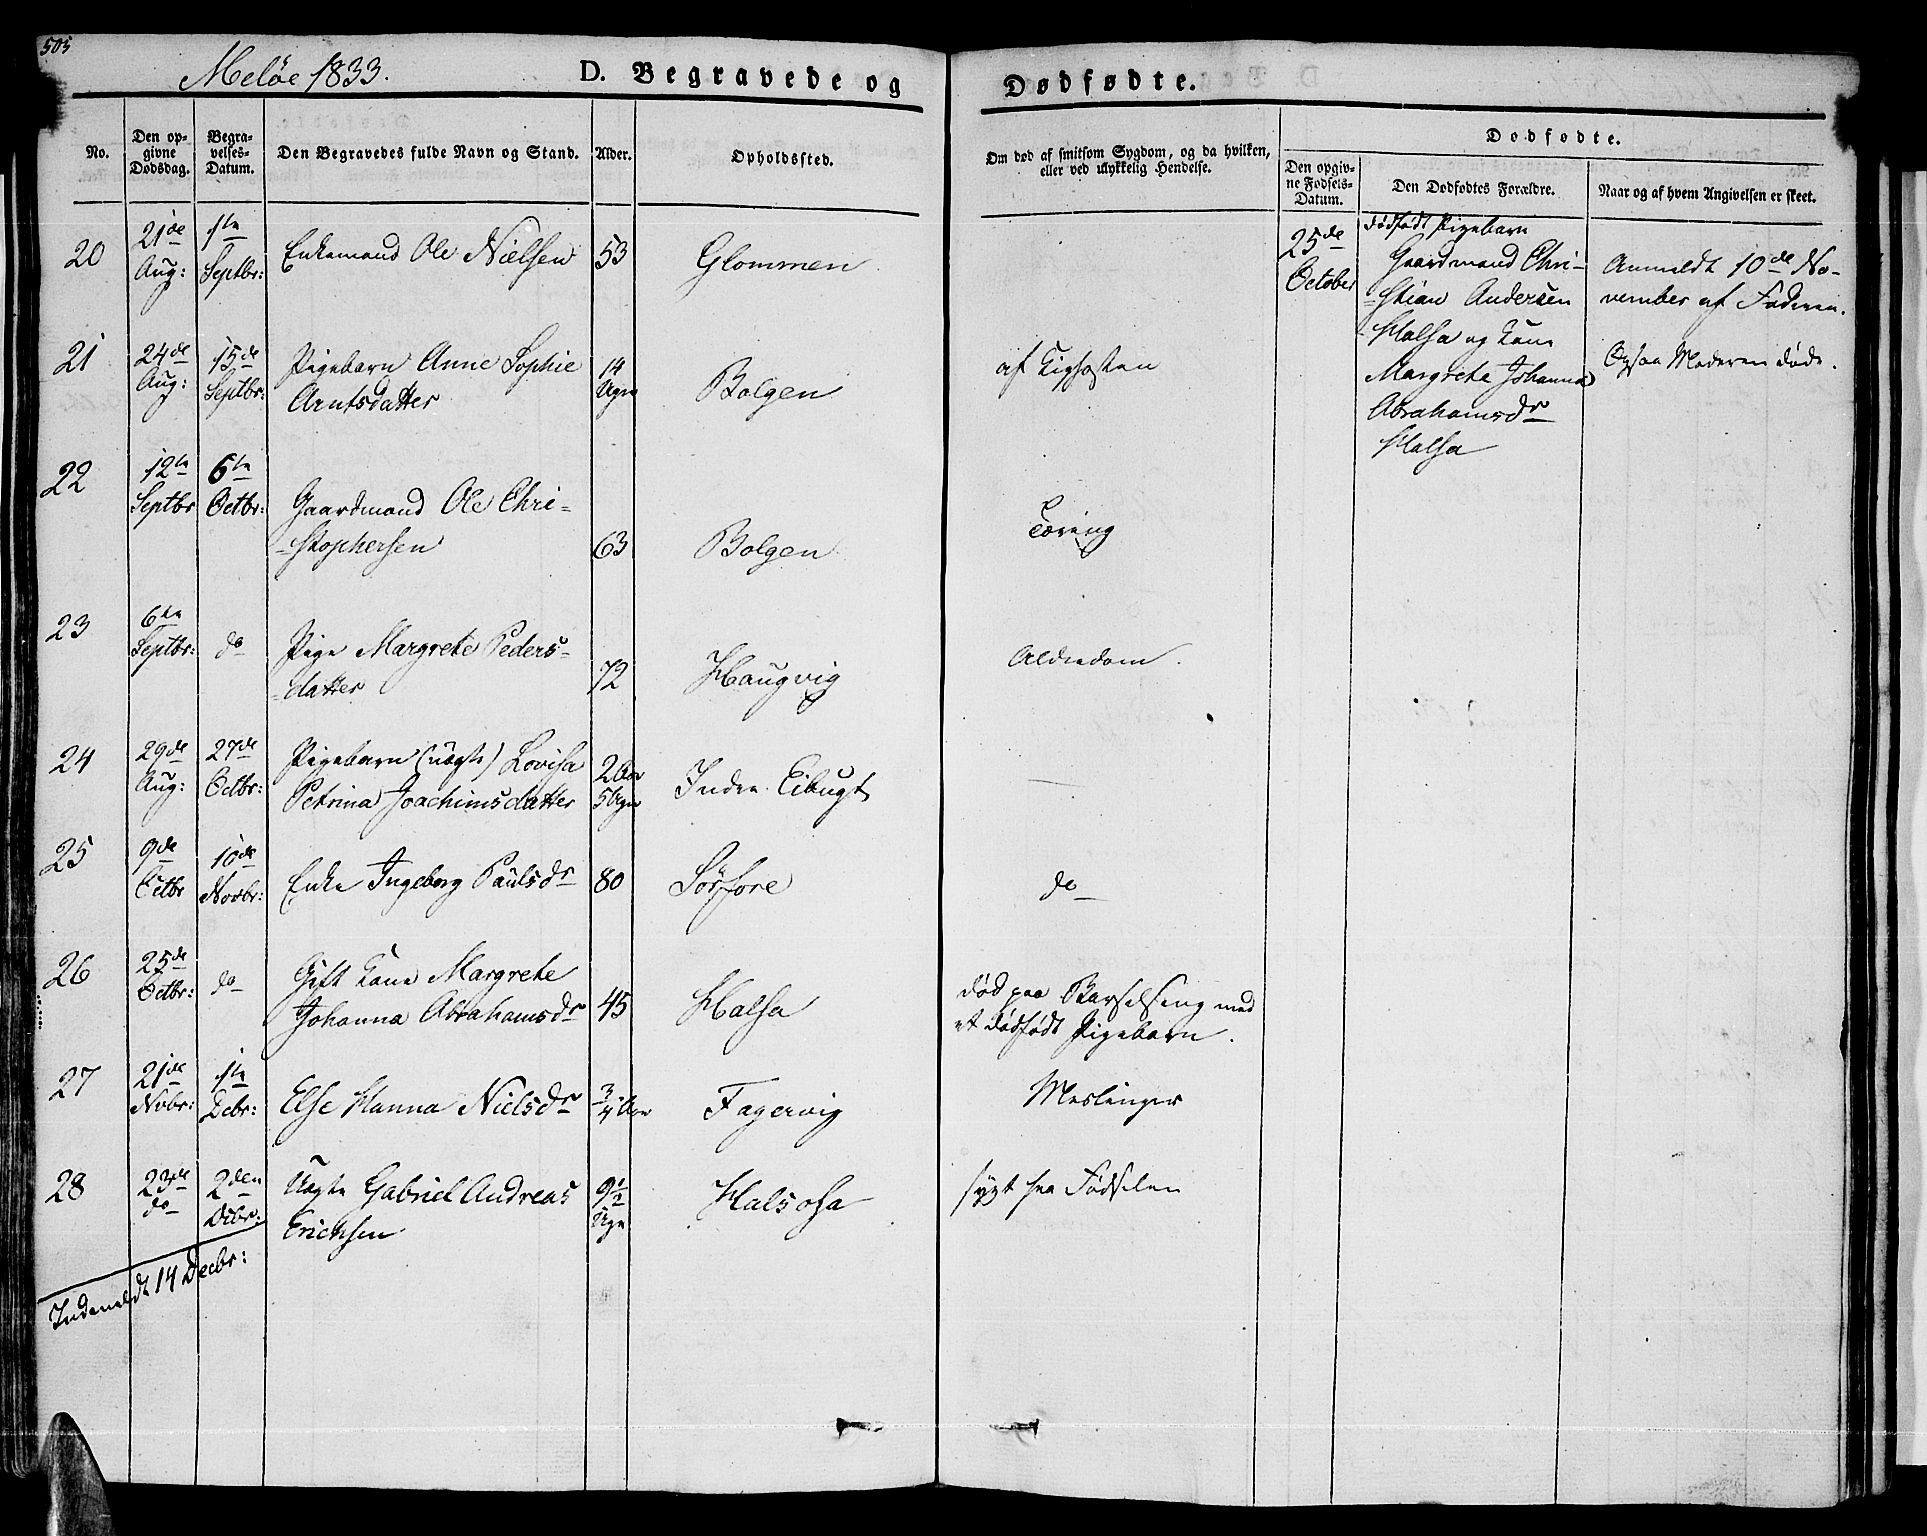 505
Meløe 1833.
D. Begravede og
Dødfødte.
No.
Den op-
givne
Dødsdag.
Begra-
velses-
Datum.
Den Begravedes fulde Navn og Stand.
Alder.
Opholdssted.
Om død af smitsom Sygdom, og da hvilken,
eller ved ulykkelig Hendelse.
Dødfødte.
Den opgiv-
ne Fødsels-
Datum.
Den Dødfødtes Forældre.
Naar og af hvem Angivelsen er skeet.
20
21de
Aug:
1ste
Septbr:
Enkemand Ole Nielsen
53
Glommen
25de
October
dødfødt Pigebarn
Gaardmand Chri-
-stian Andersen
Halsa og Kone
Margrete Johanna
Abrahamsdr
Halsa
Anmeldt 10de No-
vember af Faderen.
Ogsaa Moderen døde.
21
24de
Aug:
15de
Septbr:
Pigebarn Anne Sophie
Arntsdatter
14
Uger
Bolgen
af Kighosten
22
12te
Septbr
6te
Octbr:
Gaardmand Ole Chri-
-stophersen
63
Bolgen
Tæring
23
6te
Septbr:
do
Pige Margrete Peders-
-datter
72
Haugvig
Alderdom.
24
29de
Aug:
27de
Octbr:
Pigebarn (uægte) Lovisa
Petrina Joachimsdatter
2 Aar
5 Uger
Indre Eibugt
—
25
9de
Octbr
10de
Novbr:
Enke Ingeborg Paulsdr
80
Sörfore
do
26
25de
Octbr:
do
Gift Kone Margrete
Johanna Abrahamsdr
45
Halsa
død paa Barselseng med
et dødfødt Pigebarn.
27
21de
Novbr:
1ste
Debr:
Else Hanna Nielsdr
3/4 Aar
Fagervig
Meslinger
28
23de
do
2den
Debr:
Uægte Gabriel Andreas
Erichsen
9 1/2
Uger
Halsosa
sygt fra Fødselen
Indmeldt 14 Decbr: